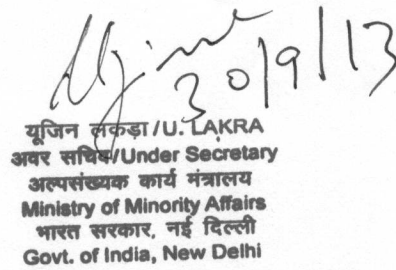 30/9/13
यूजिन लकड़ा/U. LAKRA
अवर सचिव/Under Secretary
अल्पसंख्यक कार्य मंत्रालय
Ministry of Minority Affairs
भारत सरकार, नई दिल्ली
Govt. of India, New Delhi